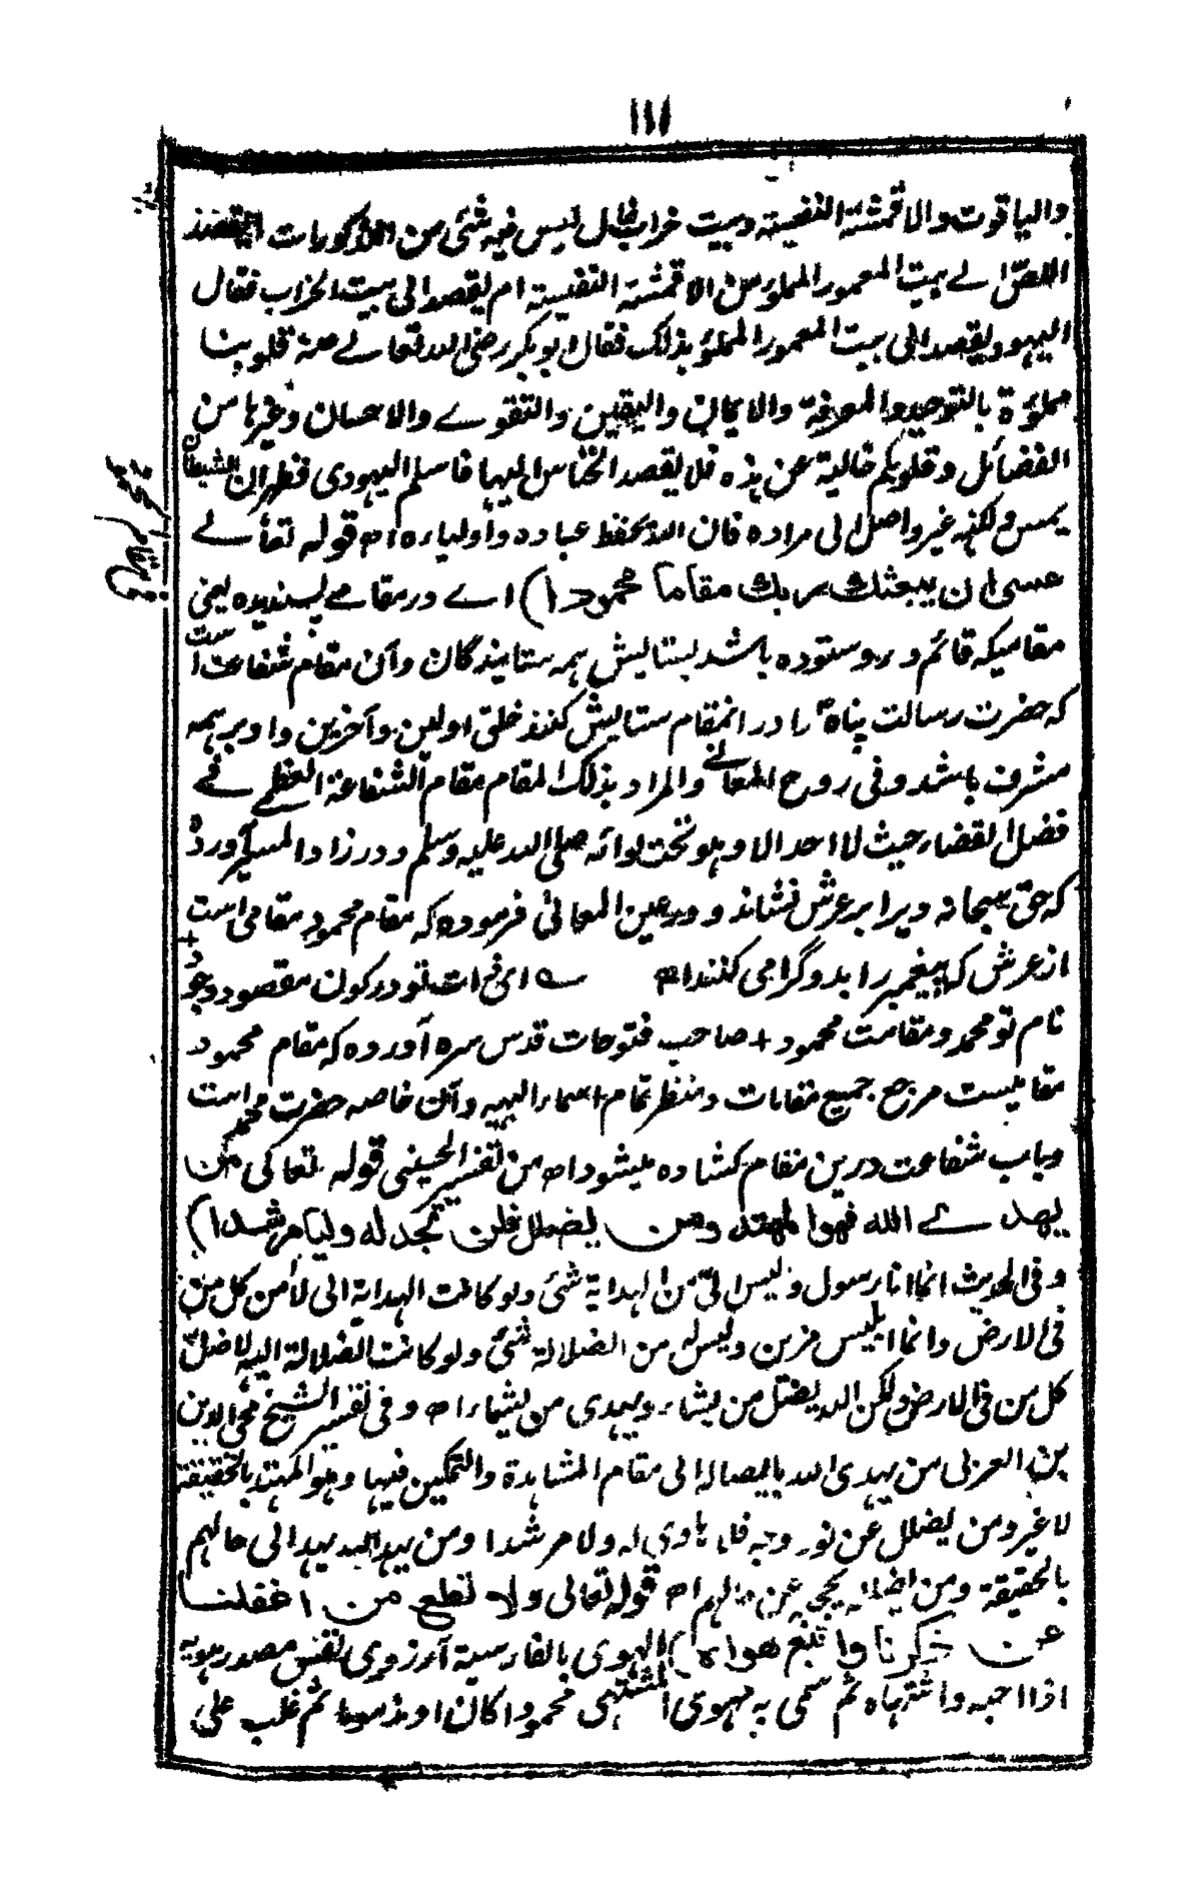 ١١١
والياقوت والاقمشة النفيسة وبيت خراب خال ليس فيه شئ من المذكورات ايقصد
اللصّ الے بيت المعمور المملو من الاقمشة النفيسة ام يقصد الى بيت الخراب فقال
اليهود يقصد الى بيت المعمور المملوّ بذلك فقال ابو بكر رضى الله تعالے عنه قلوبنا
مملوّة بالتوحيد والمعرفة والايمان واليقين والتقوے والاحسان وغيرها من
الفضائل وقلوبكم خالية عن هذه فلا يقصد الخناس اليها فاسلم اليهودى فظهر ان الشيطان
يمس ولكنه غير واصل الى مراده فان الله يحفظ عباده واولياءه اه قوله تعالے
عسى ان يبعثك ربك مقاما محمودا) اے در مقامے پسنديده يعنى
مقاميكه قائم درو ستوده باشد بستايش همه ستايندگان وآن مقام شفاعت است
كه حضرت رسالت پناه را در انمقام ستايش كنند خلق اولين وآخرين واو بر همه
مشرف باشد وفى روح المعانے والمراد بذلك المقام مقام الشفاعة العظمے فے
فصل القضاء حيث لا احد الا وهو تحت لوائه صلى الله عليه وسلم ودر زاد المسير آورده
كه حق سبحانه ويرا بر عرش نشاند ودر عين المعانى فرموده كه مقام محمود مقامى است
از عرش كه پيغمبر را بدو گرامى كنند اه ؎ اى ذات تو در كون مقصود وجود +
نام تو محمد ومقامت محمود + صاحب فتوحات قدس سره آورده كه مقام محمود
مقاميست مرجع جميع مقامات ومنظر تمام اسماء الهيه وآن خاصه حضرت محمد است
وباب شفاعت درين مقام كشاده ميشود اه من تفسير الحسينى قوله تعالى من
يهدے الله فهوا لمهتد ومن يضلل فلن تجد له وليا مرشدا)
وفى الحديث انما انا رسول وليس الىّ من الهداية شئ ولو كانت الهداية الى لأمن كل من
فى الارض وانما ابليس مزين وليس له من الضلالة شئ ولو كانت الضلالة اليه لاضلّ
كل من فى الارض ولكن الله يضل من يشاء ويهدى من يشاء اه وفى تفسير الشيخ محى الدين
بن العربى من يهدى الله بايصاله الى مقام المشاهدة والتمكين فيها وهو المهتد بالحقيقة
لا غير ومن يضلل عن نور وجه فلا هادى له ولا مرشدا ومن يهد الله يهد الى حالهم
بالحقيقة ومن اضلله يحجبه عن حالهم اه قوله تعالى ولا تطع من اغفلنا
عن ذكرنا واتبع هواه) الهوى بالفارسية آرزوى نفس مصدر هويه
اذا احبه واشتهاه ثم سمى به مهوى المشتهى محمودا كان او مذموما ثم غلب على